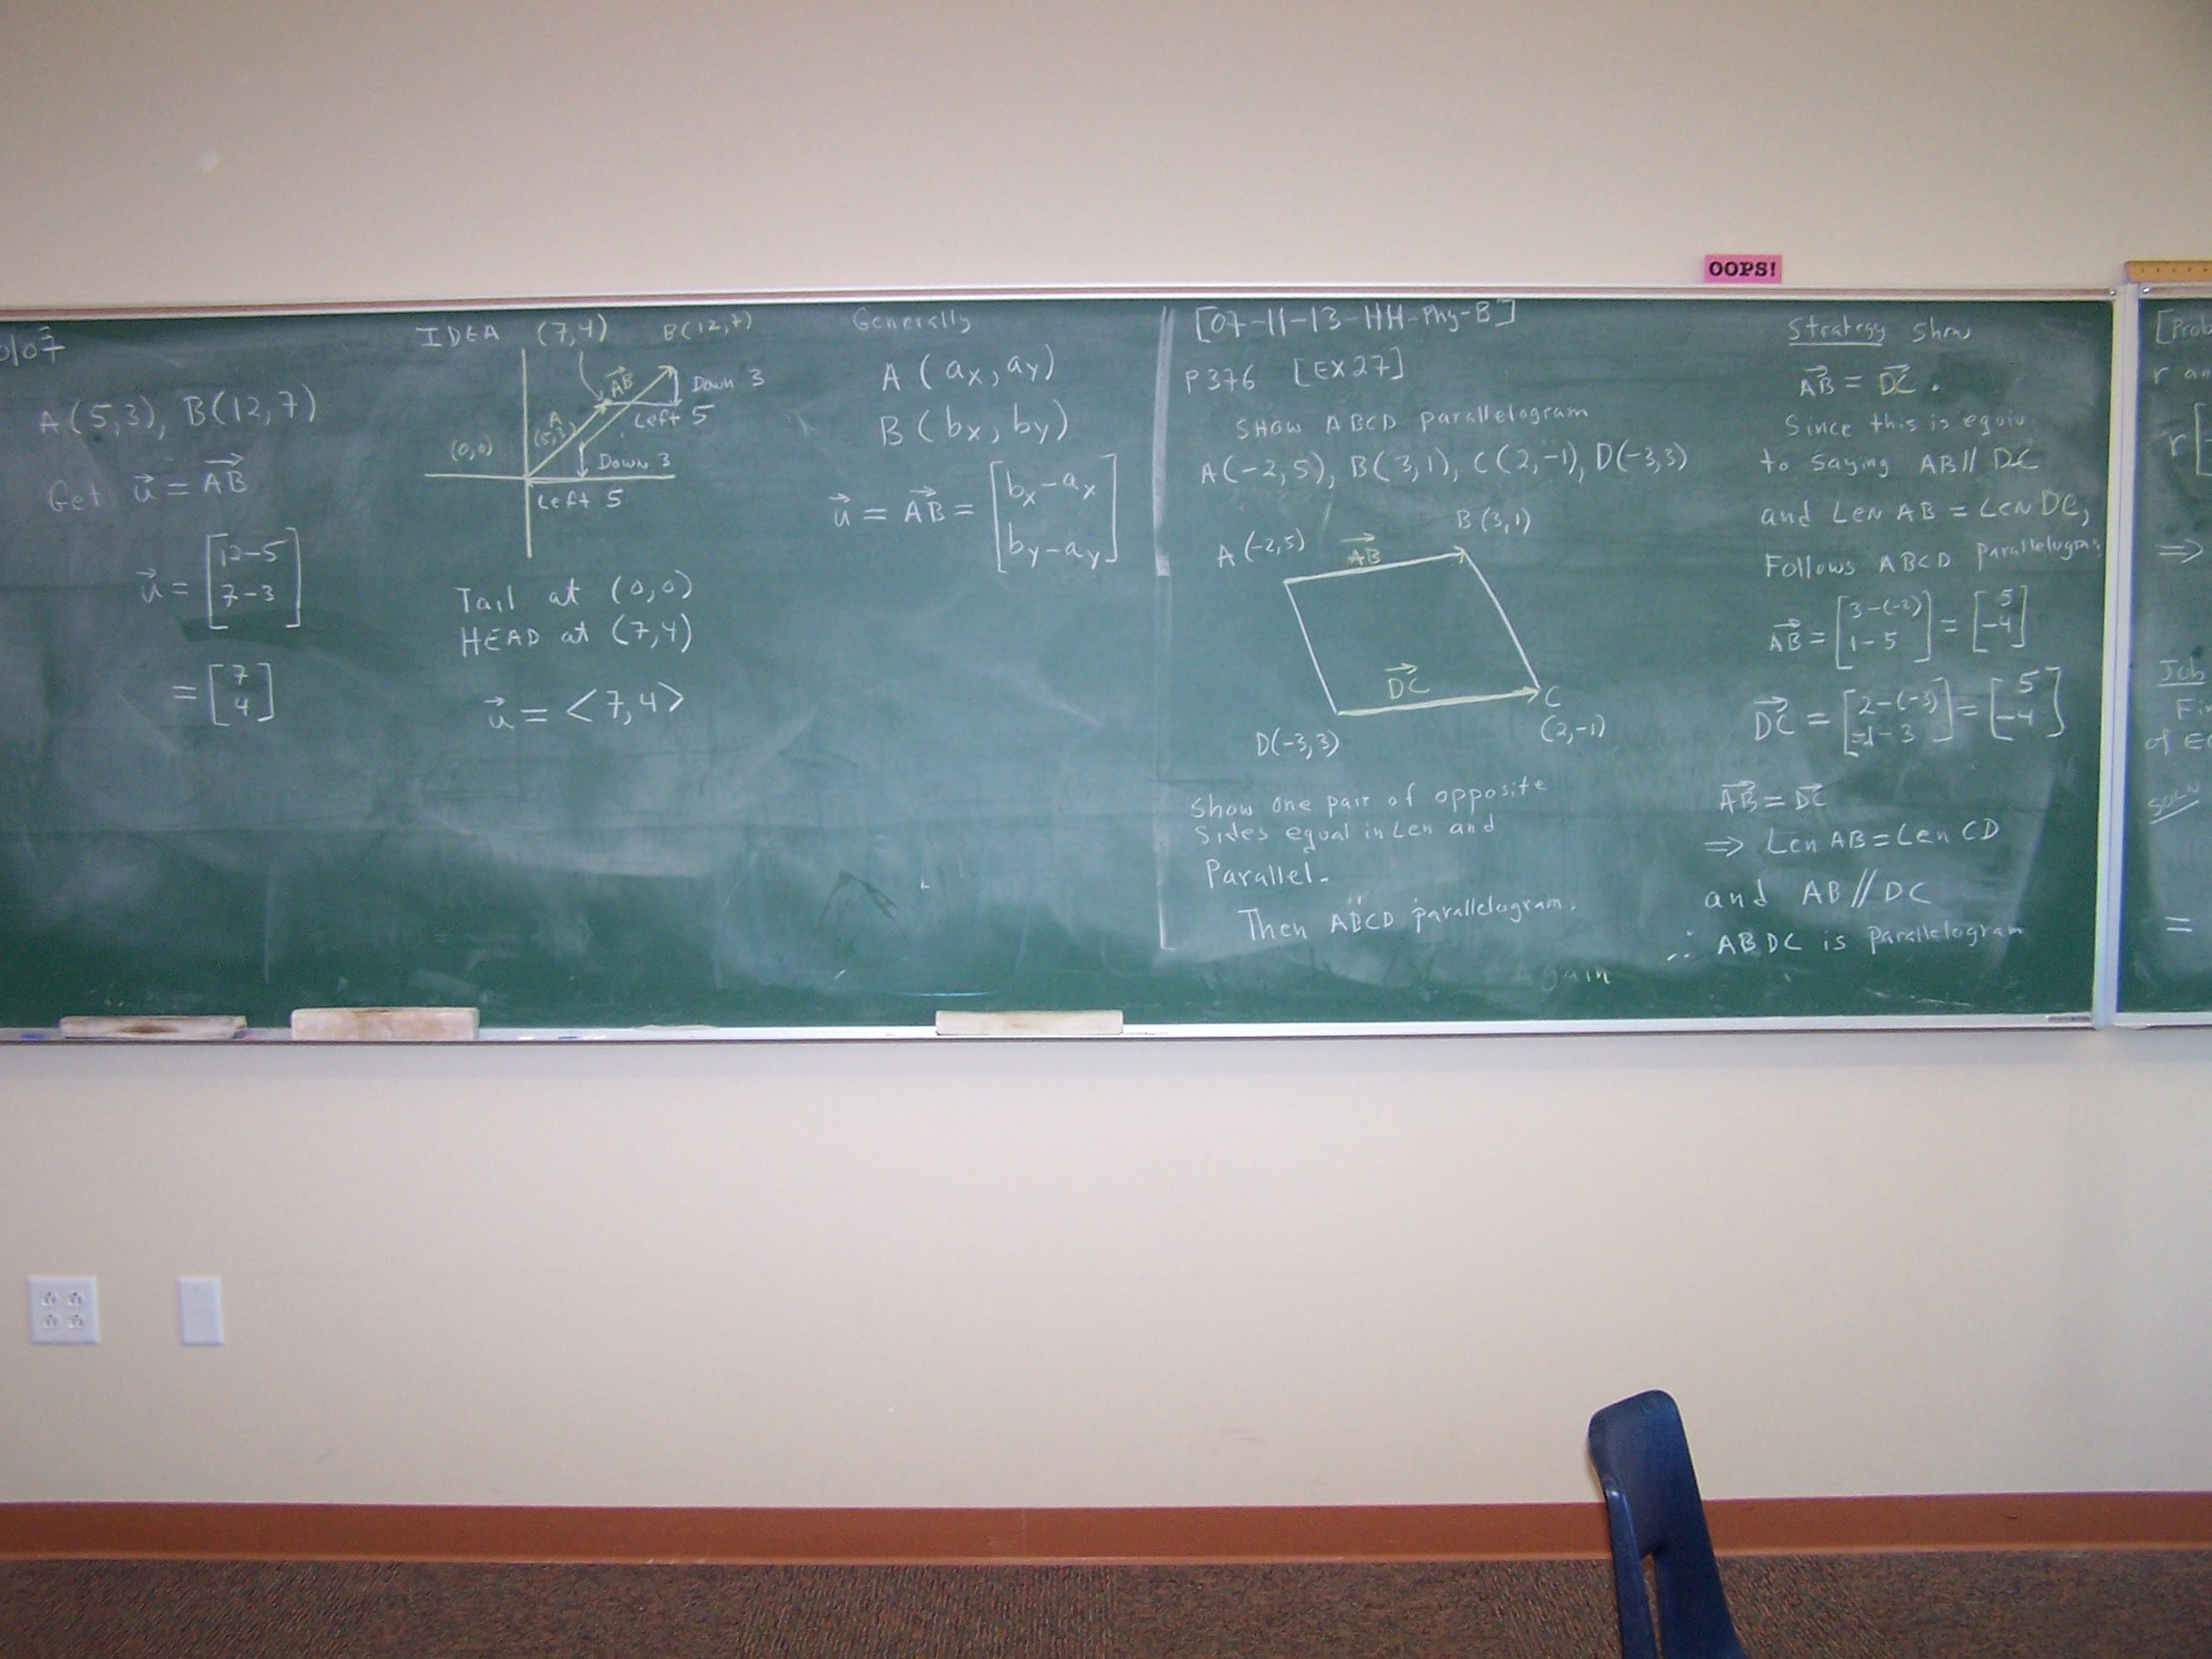 OOPS!
A(5,3), B(12,7)
Get u⃗ = AB⃗
u⃗ = [12-5
7-3]
= [7
4]
IDEA (7,4) B(12,7)
AB⃗
Down 3
A
(5,3)
Left 5
(0,0)
Down 3
Left 5
Tail at (0,0)
HEAD at (7,4)
u⃗ = <7,4>
Generally
A (ax, ay)
B (bx, by)
u⃗ = AB⃗ = [bx-ax
by-ay]
[07-11-13-HH-Phy-B]
P376 [EX27]
SHOW ABCD parallelogram
A(-2,5), B(3,1), C(2,-1), D(-3,3)
B (3,1)
A (-2,5) AB⃗
DC⃗
C
(2,-1)
D(-3,3)
Show one pair of opposite
Sides equal in Len and
Parallel.
Then ABCD parallelogram.
Again
Strategy Show
AB⃗ = DC⃗.
Since this is equiv.
to Saying AB // DC
and Len AB = Len DC,
Follows ABCD parallelogram
AB⃗ = [3-(-2)
1-5] = [5
-4]
DC⃗ = [2-(-3)
-1-3] = [5
-4]
AB⃗ = DC⃗
⇒ Len AB = Len CD
and AB // DC
∴ ABDC is parallelogram
[Prob
r an
r [
⇒
Job
Fi
of E
SOLN
=